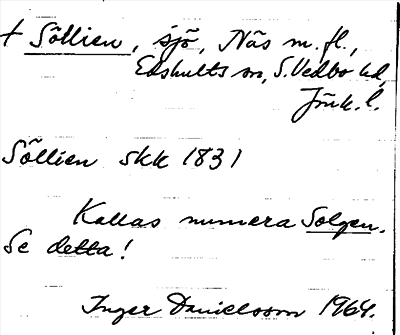 † Söllien, sjö, Näs m.fl.,
Edshults sn, S. Vedbo hd,
Jönk. l.
Söllien skk 1831
Kallas numera Solgen.
Se detta!
Inger Danielsson 1964.